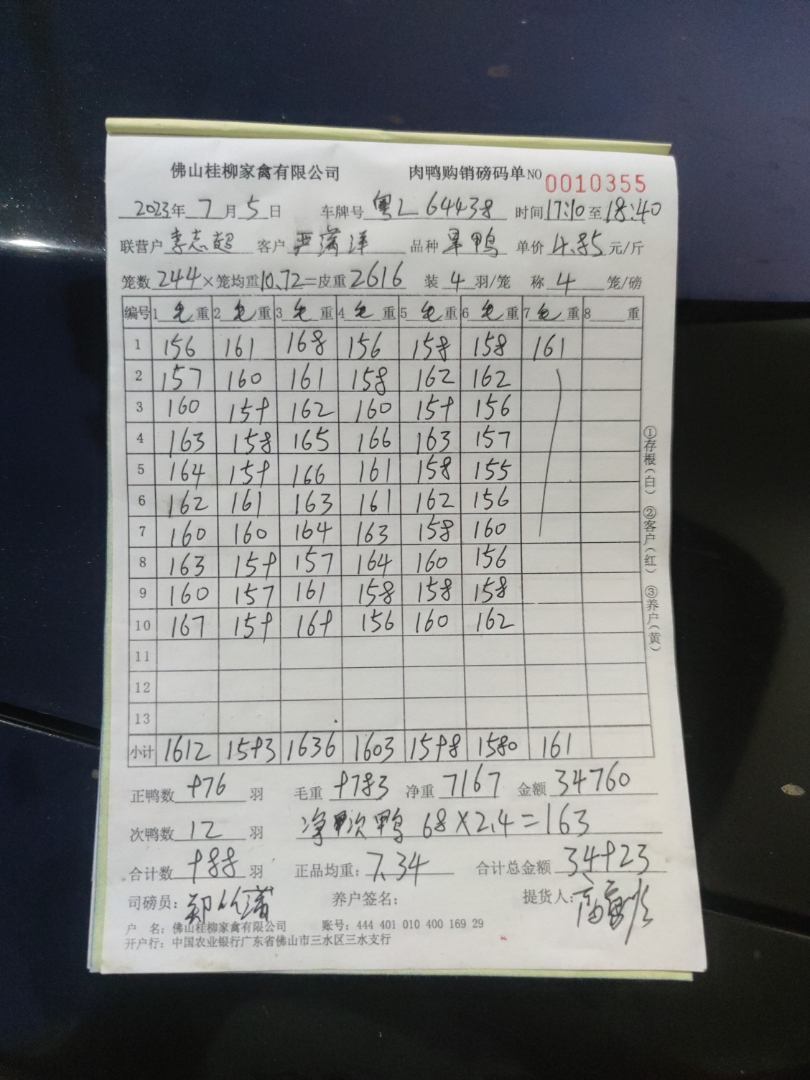 佛山桂柳家禽有限公司 肉鸭购销磅码单NO 0010355
2023年 7月 5日 车牌号 粤L 64438 时间 17:10至18:40
联营户 李志超 客户 品种 旱鸭 单价 4.85 元/斤
笼数 244×笼均重10.72=皮重 2616 装 4 羽/笼 称 4 笼/磅
编号 1 毛重 2 毛重 3 毛重 4 毛重 5 毛重 6 毛重 7 毛重 8 重
1 156 161 168 156 158 158 161
2 157 160 161 158 162 162
3 160 159 162 160 159 156
4 163 158 165 166 163 157
5 164 159 166 161 158 155
6 162 161 163 161 162 156
7 160 160 164 163 158 160
8 163 159 157 164 160 156
9 160 157 161 158 158 158
10 167 159 169 156 160 162
11
12
13
小计 1612 1593 1636 1603 1598 1580 161
①存根(白) ②客户(红) ③养户(黄)
正鸭数 976 羽 毛重 9783 净重 7167 金额 34760
次鸭数 12 羽 净 次鸭 68×2.4=163
合计数 988 羽 正品均重: 7.34 合计总金额 34923
司磅员: 养户签名: 提货人:
户 名: 佛山桂柳家禽有限公司 账号: 444 401 010 400 169 29
开户行: 中国农业银行广东省佛山市三水区三水支行